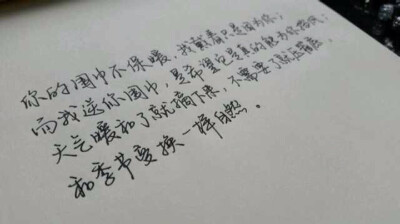 你的围巾不保暖，我戴着只是因为你；
而我送你围巾，是希望它是真的能为你保暖；
天气暖和了就摘下来，不需要了就还给我，
和季节变换一样自然。